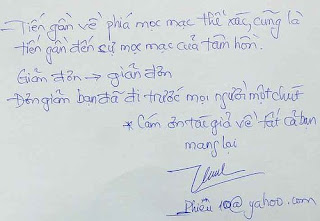 - Tiến gần về phía mọc mạc thể xác, cũng là
tiến gần đến sự mọc mạc của tâm hồn.
Giảm đơn → giản đơn
- Đơn giản bạn đã đi trước mọi người một chút
* Cám ơn tác giả về tất cả bạn
mang lại
Phiêu 10@yahoo.com